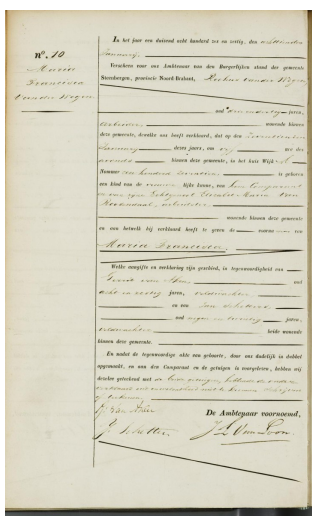 nº. 10
Maria
Francisca
van der Wegen
In het jaar een duizend acht honderd zes en zestig, den achttienden
Januarij
Verscheen voor ons Ambtenaar van den Burgerlijken stand der gemeente
Steenbergen, provincie Noord-Brabant, van der Wegen
oud jaren,
arbeider wonende binnen
deze gemeente, dewelke ons heeft verklaard, dat op den zeventienden
Januarij dezes jaars, om ure des
avonds binnen deze gemeente, in het huis Wijk
Nummer een honderd is geboren
een kind van de kunne, van hem Comparant
en van zijne Echtgenoot Maria van
arbeidster
wonende binnen deze gemeente
en aan hetwelk hij verklaard heeft te geven de voornamen van
Maria Francisca.
Welke aangifte en verklaring zijn geschied, in tegenwoordigheid van
Gerrit van oud
acht en zestig jaren, veldwachter
en van Jan Schetter
oud negen en twintig jaren,
veldwachter beide wonende
binnen deze gemeente.
En nadat de tegenwoordige akte van geboorte, door ons dadelijk in dubbel
opgemaakt, en aan den Comparant en de getuigen is voorgelezen, hebben wij
dezelve geteekend met de twee getuigen, hebbende de vader
verklaard niet te kunnen schrijven
of teekenen.
De Ambtenaar voornoemd,
J. Schetter.
J L Van Loon